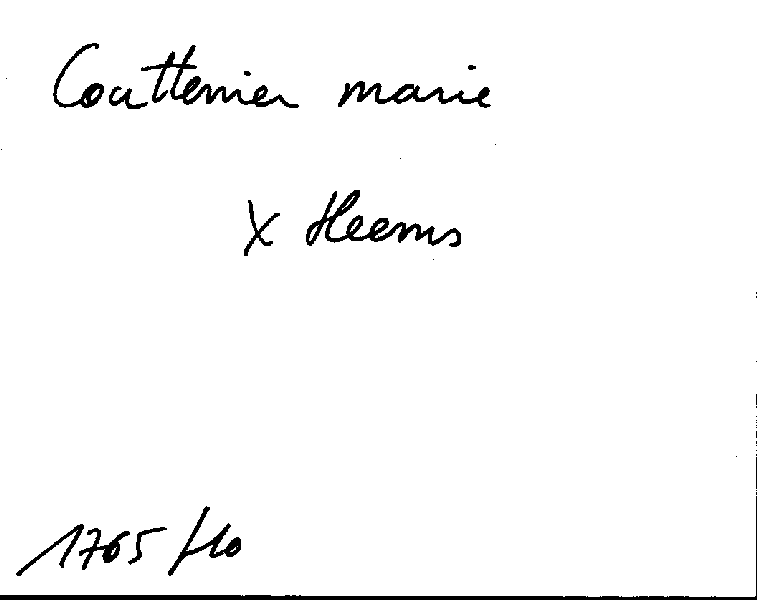 Couttenier marie
X Heems
1765 / 10